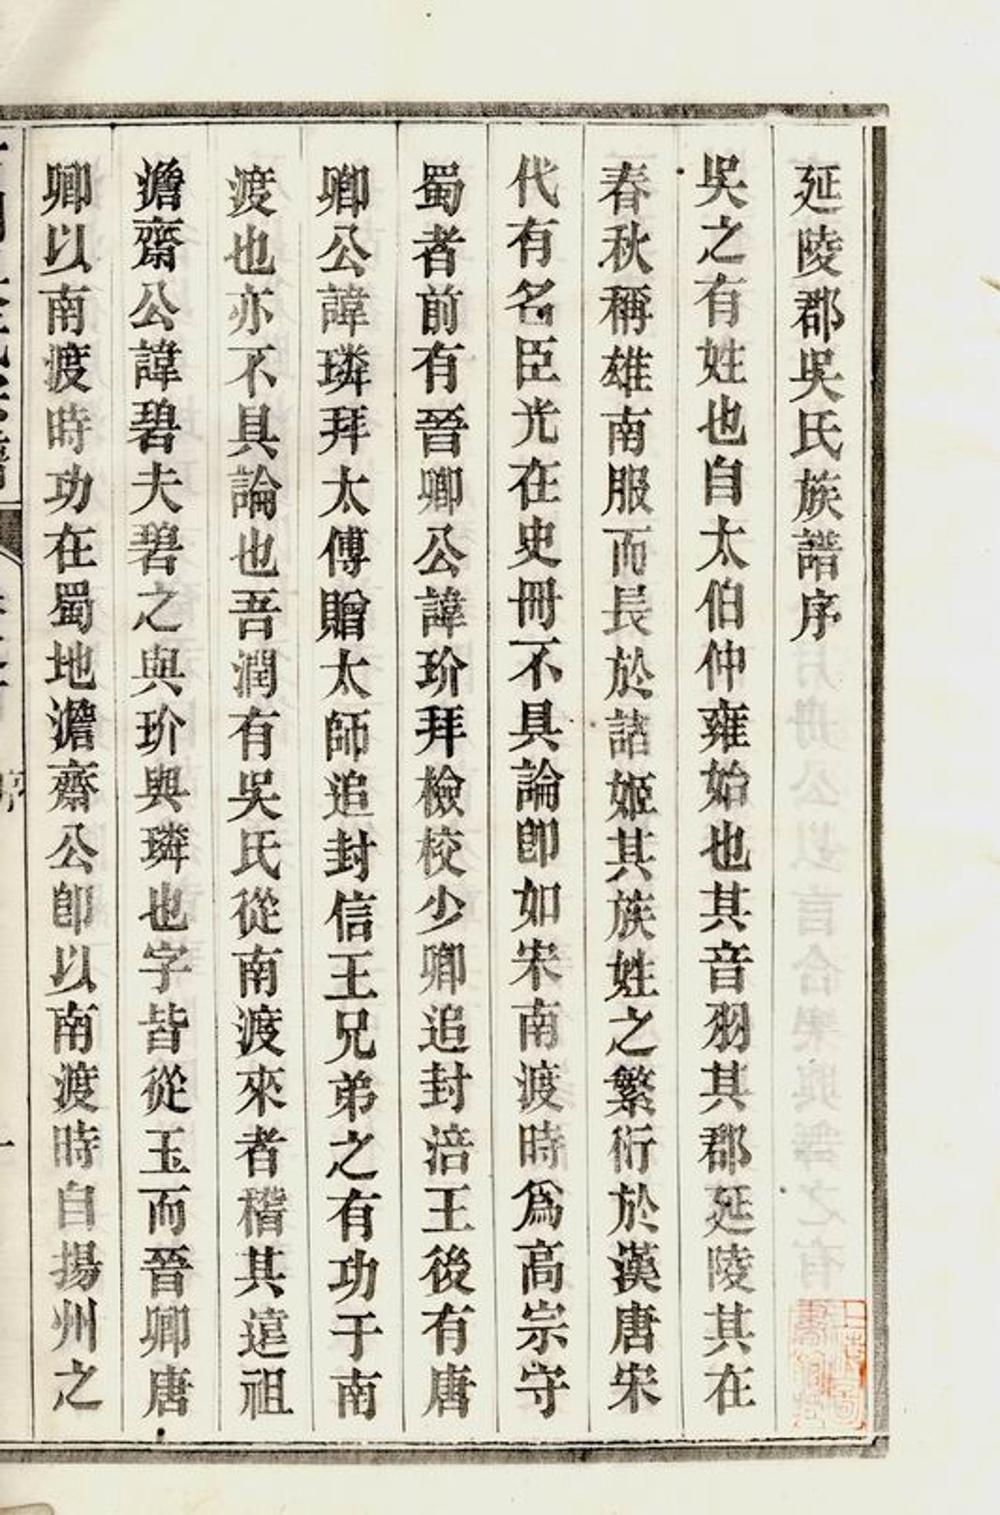 延陵郡吳氏族譜序
吳之有姓也自太伯仲雍始也其音羽其郡延陵其在
春秋稱雄南服而長於諸姬其族姓之繁衍於漢唐宋
代有名臣光在史冊不具論卽如宋南渡時爲高宗守
蜀者前有晉卿公諱玠拜檢校少卿追封涪王後有唐
卿公諱璘拜太傅贈太師追封信王兄弟之有功于南
渡也亦不具論也吾潤有吳氏從南渡來者稽其遠祖
澹齋公諱碧夫碧之與玠與璘也字皆從玉而晉卿唐
卿以南渡時功在蜀地澹齋公卽以南渡時自揚州之